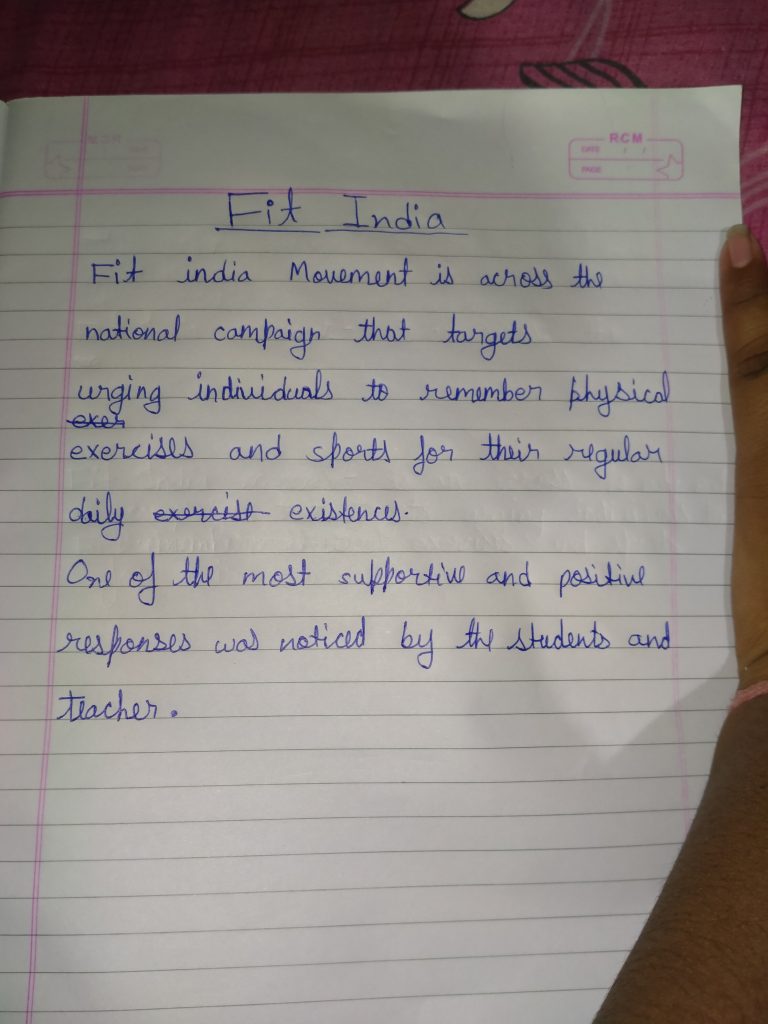 RCM
DATE / /
PAGE
Fit India
Fit india Movement is across the
national campaign that targets
urging individuals to remember physical
exer
exercises and sports for their regular
daily exercist existences.
One of the most supportive and positive
responses was noticed by the students and
teacher.